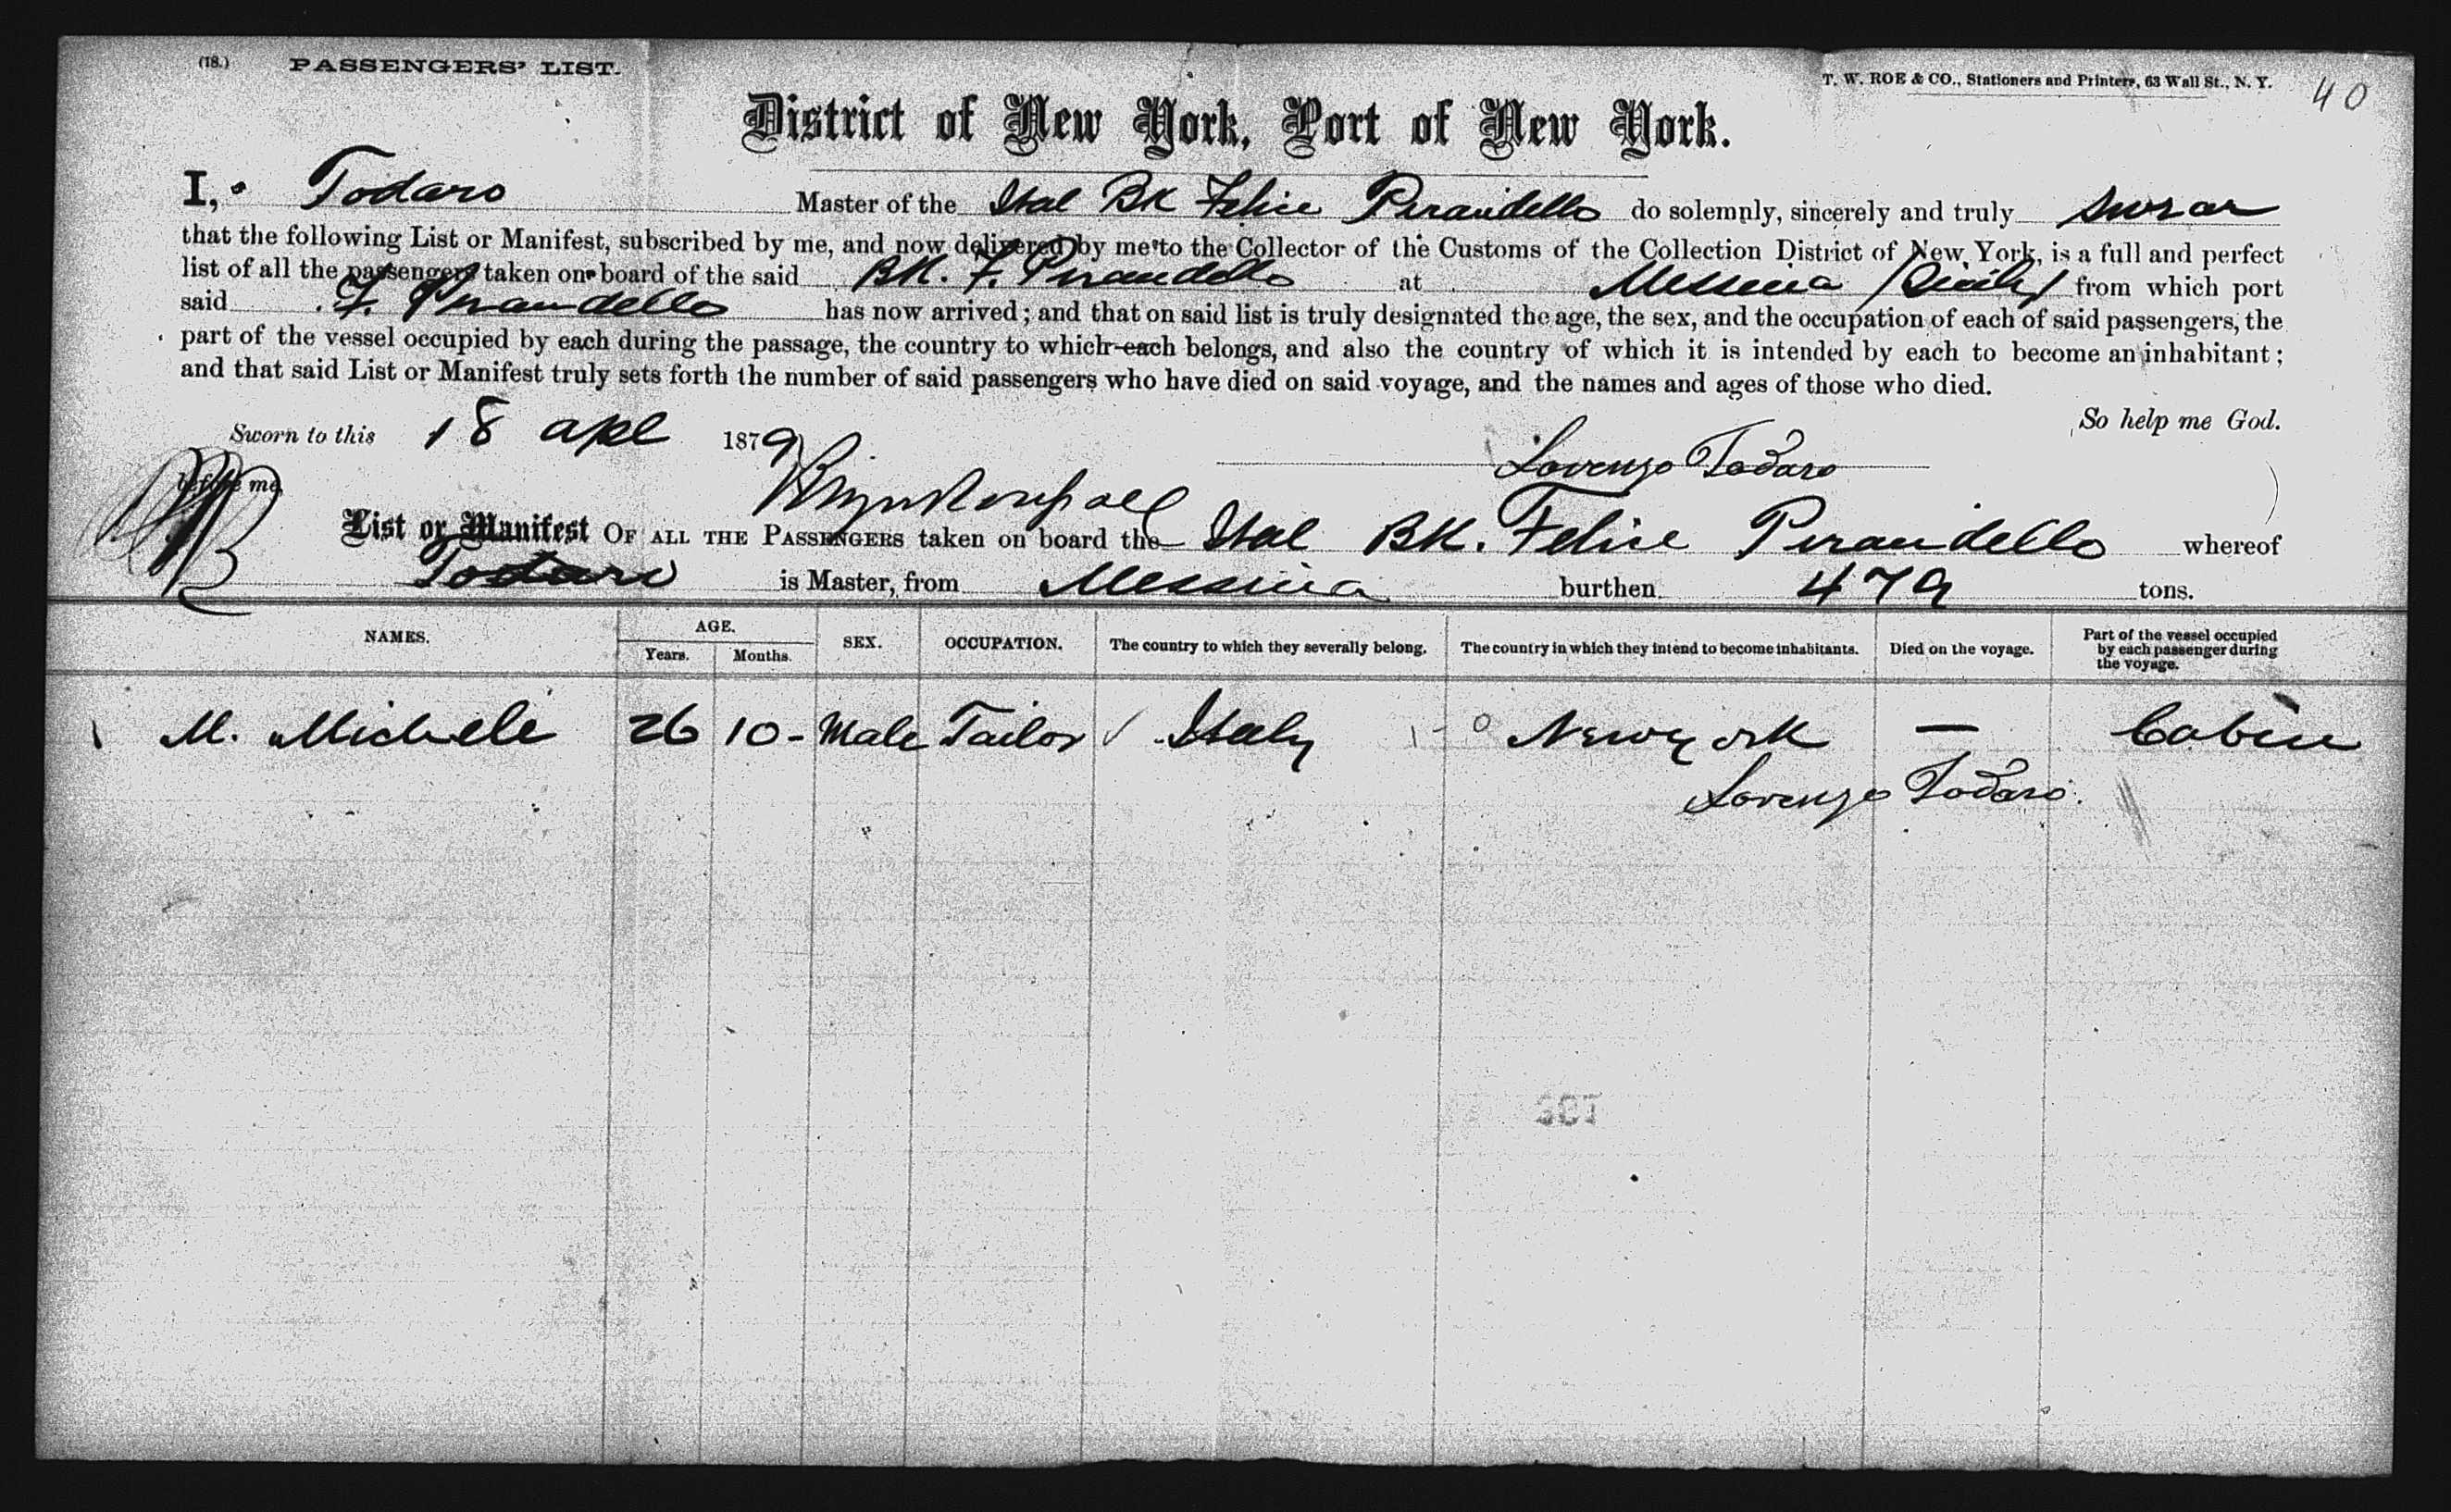 (18.) PASSENGERS' LIST.
T. W. ROE & CO., Stationers and Printers, 63 Wall St., N. Y. 40
District of New York, Port of New York.
I, Todaro Master of the Ital BK Felice Pirandello do solemnly, sincerely and truly swear
that the following List or Manifest, subscribed by me, and now delivered by me to the Collector of the Customs of the Collection District of New York, is a full and perfect
list of all the passengers taken on board of the said BK. F. Pirandello at Messina (Sicily) from which port
said F. Pirandello has now arrived; and that on said list is truly designated the age, the sex, and the occupation of each of said passengers, the
part of the vessel occupied by each during the passage, the country to which each belongs, and also the country of which it is intended by each to become an inhabitant;
and that said List or Manifest truly sets forth the number of said passengers who have died on said voyage, and the names and ages of those who died.
So help me God.
Sworn to this 18 Apl 1879
Lorenzo Todaro
before me,
List or Manifest OF ALL THE PASSENGERS taken on board the Ital BK. Felice Pirandello whereof
Todaro is Master, from Messina burthen 479 tons.
NAMES. AGE. Years. Months. SEX. OCCUPATION. The country to which they severally belong. The country in which they intend to become inhabitants. Died on the voyage. Part of the vessel occupied by each passenger during the voyage.
M. Michele 26 10 - Male Tailor Italy New York — Cabin
Lorenzo Todaro.